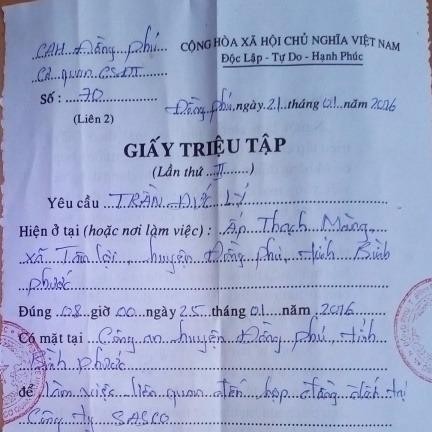 CAH Đồng Phú
CQ quan CSĐT
Số: 70
(Liên 2)
CỘNG HÒA XÃ HỘI CHỦ NGHĨA VIỆT NAM
Độc Lập - Tự Do - Hạnh Phúc
Đồng Phú, ngày 21 tháng 01 năm 2016
GIẤY TRIỆU TẬP
(Lần thứ II)
Yêu cầu TRẦN ĐỨC LÝ
Hiện ở tại (hoặc nơi làm việc): Ấp Thạch Màng,
xã Tân Lợi, huyện Đồng Phú, tỉnh Bình
Phước
Đúng 08 giờ 00 ngày 25 tháng 01 năm 2016
Có mặt tại Công an huyện Đồng Phú, tỉnh
Bình Phước
để làm việc liên quan đến hợp đồng
Công ty SASCO